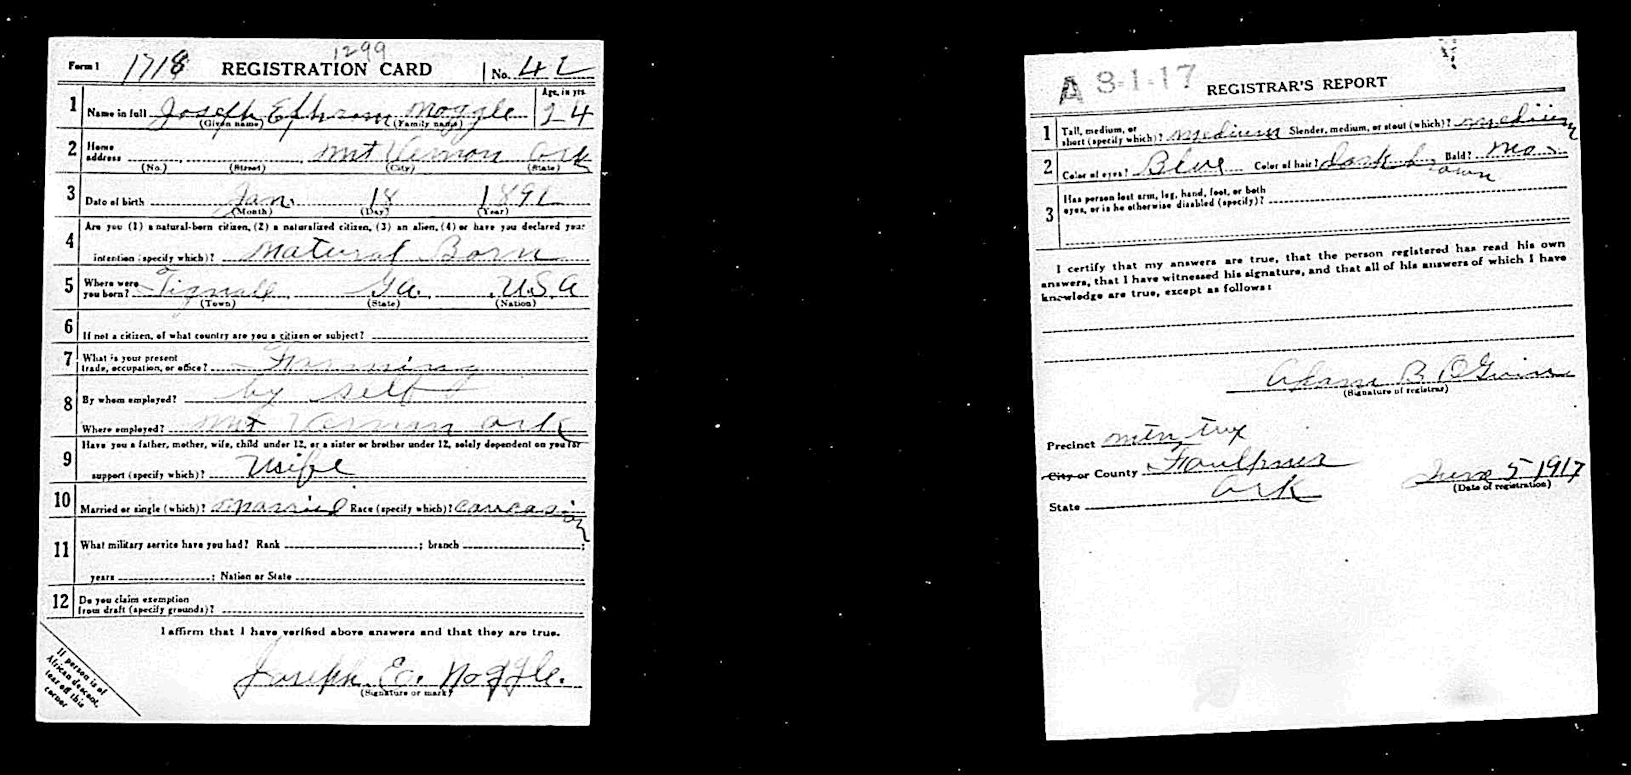 1299
Form 1 1718 REGISTRATION CARD No. 42
Age, in yrs.
1 Name in full Joseph Ephrom Noggle 24
(Given name) (Family name)
2 Home address Mt Vernon Ark
(No.) (Street) (City) (State)
3 Date of birth Jan. 18 1892
(Month) (Day) (Year)
4 Are you (1) a natural-born citizen, (2) a naturalized citizen, (3) an alien, (4) or have you declared your
intention (specify which)? Natural Born
5 Where were you born? Tignall Ga. U.S.A
(Town) (State) (Nation)
6 If not a citizen, of what country are you a citizen or subject?
7 What is your present trade, occupation, or office? Farming
8 By whom employed? by self
Where employed? Mt Vernon Ark
9 Have you a father, mother, wife, child under 12, or a sister or brother under 12, solely dependent on you for
support (specify which)? Wife
10 Married or single (which)? Married Race (specify which)? Caucasian
11 What military service have you had? Rank ; branch ;
years ; Nation or State
12 Do you claim exemption from draft (specify grounds)?
I affirm that I have verified above answers and that they are true.
Joseph E. Noggle.
(Signature or mark)
If person is of
African descent,
tear off this
corner
A 3-1-17 REGISTRAR'S REPORT
1 Tall, medium, or short (specify which)? medium Slender, medium, or stout (which)? medium
2 Color of eyes? Blue Color of hair? dark brown Bald? No
3 Has person lost arm, leg, hand, foot, or both
eyes, or is he otherwise disabled (specify)?
I certify that my answers are true, that the person registered has read his own
answers, that I have witnessed his signature, and that all of his answers of which I have
knowledge are true, except as follows:
Adam B.
(Signature of registrar)
Precinct Mtn twp
City or County Faulkner June 5 1917
(Date of registration)
State Ark